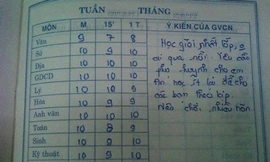 TUẦN THÁNG
MÔN M 15' 1 T. Ý KIẾN CỦA GVCN
Văn 9 7 8
Sử 10 9 10
Địa 10 10 10
GDCD 10 10 10
Lý 10 10 9
Hóa 9 9
Anh văn 10 10 10
Toán 10 8 9
Sinh 10 10
Kỹ thuật 10
Học giỏi nhất lớp,
ai qua nổi. Yêu cầu
phụ huynh cho em
ăn học ít lại để cho
các bạn theo kịp.
Nếu chơi nhiều hơn